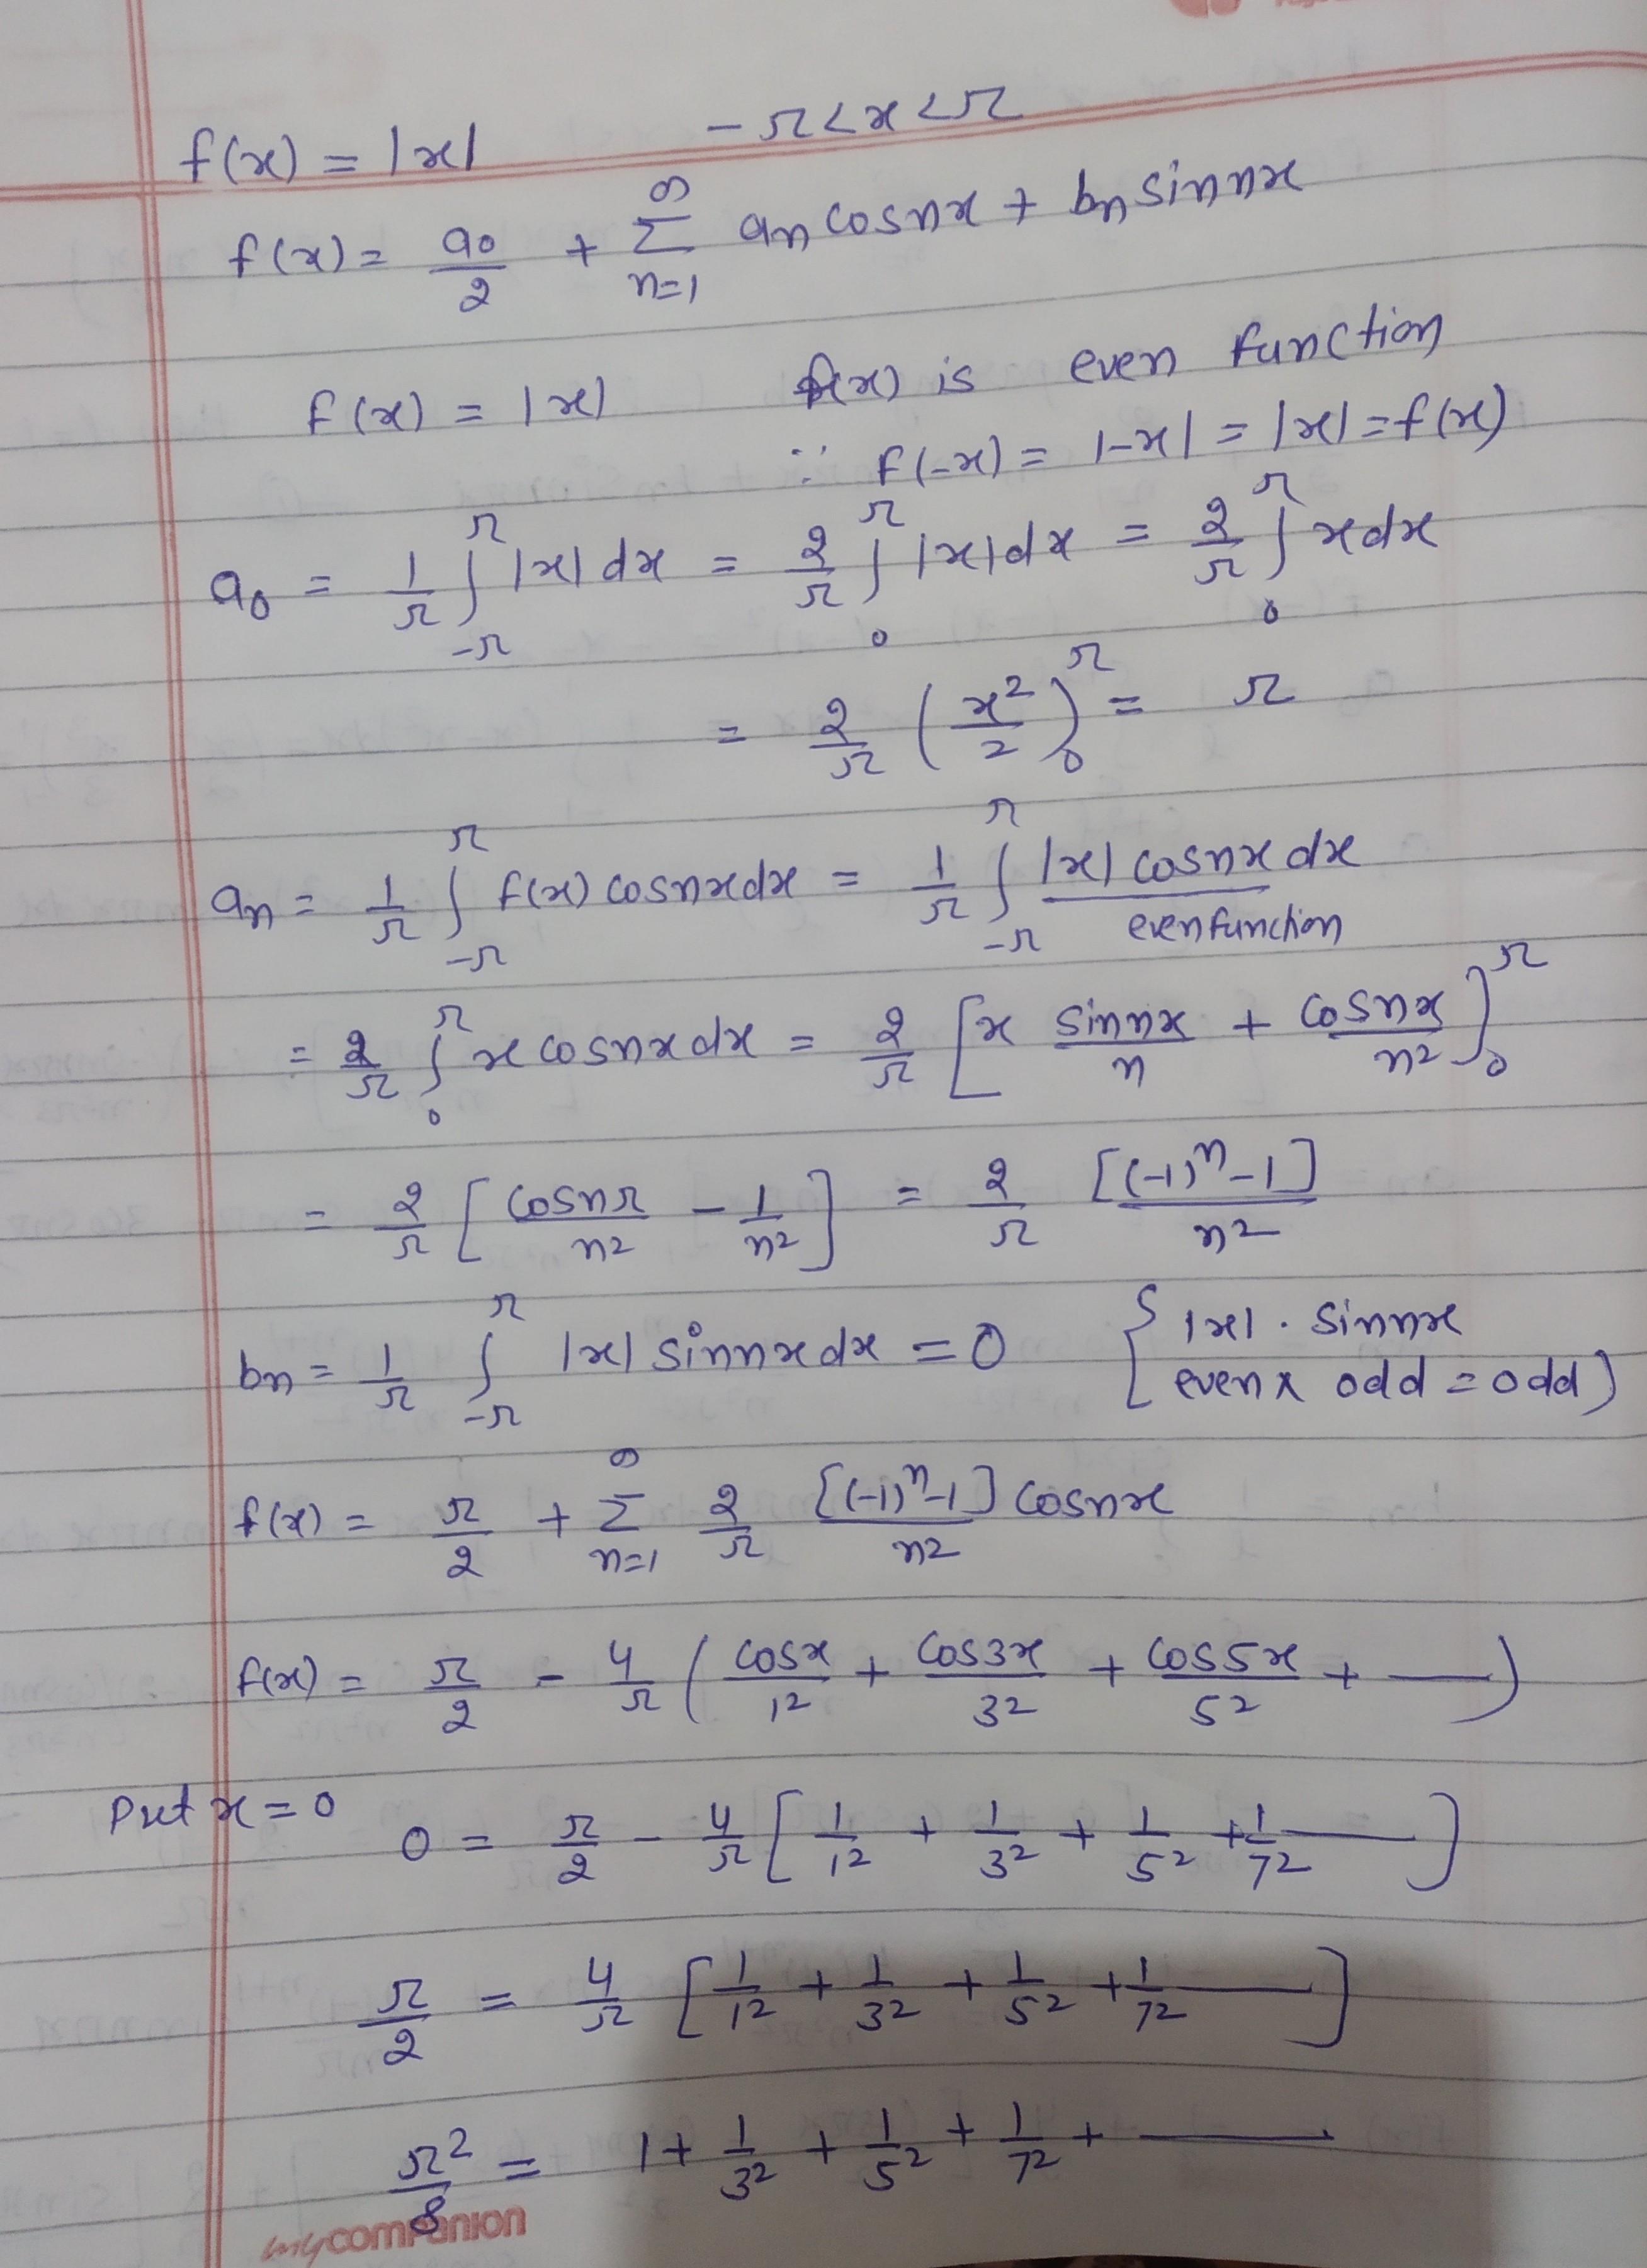 f(x) = |x|    -π<x<π
f(x) = a₀/2 + ∞Σn=1 aₙ cosnx + bₙ sinnx
f(x) = |x|    f(x) is even function
∵ f(-x) = |-x| = |x| = f(x)
a₀ = 1/π ∫_{-π}^{π} |x| dx = 2/π ∫_0^π |x| dx = 2/π ∫_0^π x dx
= 2/π (x²/2)_0^π = π
aₙ = 1/π ∫_{-π}^{π} f(x) cosnx dx = 1/π ∫_{-π}^{π} |x| cosnx dx
even function
= 2/π ∫_0^π x cosnx dx = 2/π [x sinnx/n + cosnx/n²]_0^π
= 2/π [cosnπ/n² - 1/n²] = 2/π [(-1)ⁿ-1]/n²
bₙ = 1/π ∫_{-π}^{π} |x| sinnx dx = 0    { |x| . sinnx
even x odd = odd)
f(x) = π/2 + ∞Σn=1 2/π [(-1)ⁿ-1]/n² cosnx
f(x) = π/2 - 4/π (cosx/1² + cos3x/3² + cos5x/5² + —)
Put x = 0    0 = π/2 - 4/π [1/1² + 1/3² + 1/5² + 1/7² —]
π/2 = 4/π [1/1² + 1/3² + 1/5² + 1/7² —]
π²/8 = 1 + 1/3² + 1/5² + 1/7² + —
mycompanion